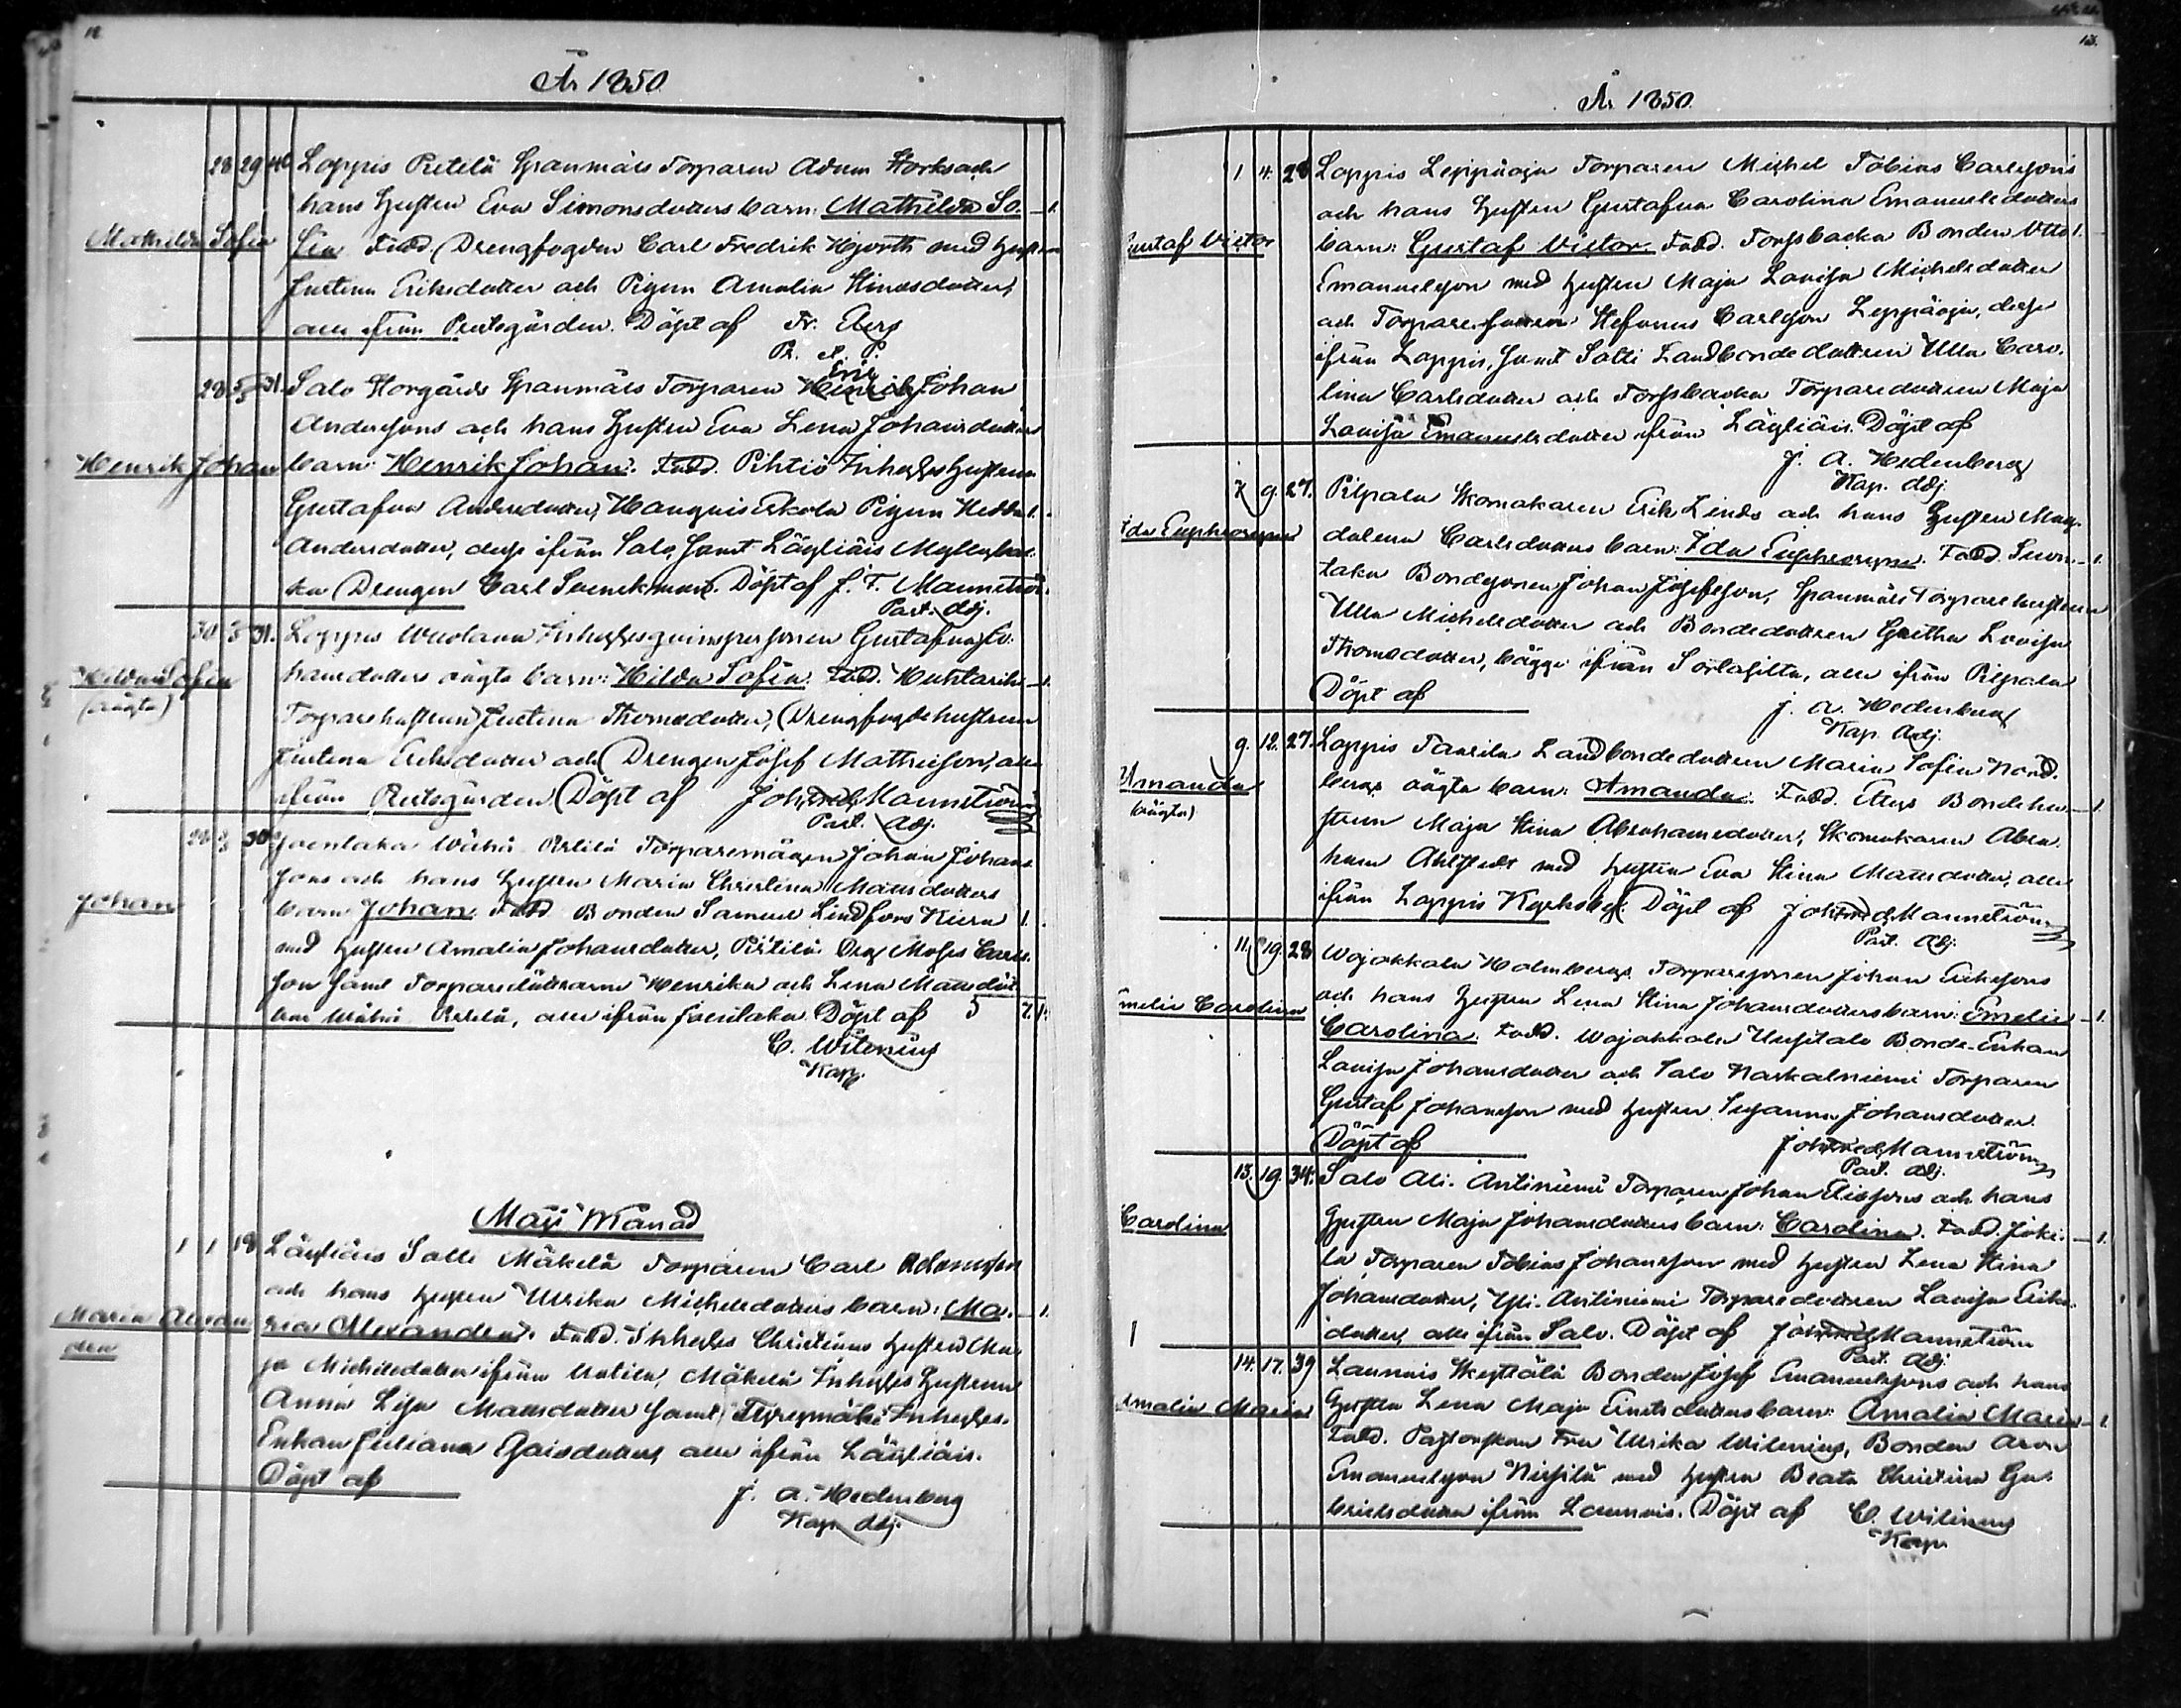 12
År 1850
28 29 40 Loppis Pietilä Spanmåls Torparen Adam Storks och
hans Hustru Eva Simonsdotters barn: Mathilda So- 1.
Mathilda Sofia
fia Fadd. Drengfogden Carl Fredrik Hjorth med Hustru
Justina Eriksdotter och Pigan Amalia Hinricsdotter,
alla ifrån Prestgården. Döpt af Fr. Elers
Pr. A. P.
28 5/5 31. Salo Storgårds Spanmåls Torparen Henrik Erik Johan
Anderssons och hans Hustru Eva Lena Johansdotters
Henrik Johan barn: Henrik Johan. Fadd. Pihtiö Inhyses Hustrun
Gustafva Andersdotter, Hauquis Eskola Pigan Hedda 1.
Andersdotter, desse ifrån Salo, samt Läyliäis Myllykos-
ka Drengen Carl Svenskman. Döpt af J. F. Mannström
Past. Adj.
30 5/5 31. Loppis Inhyses qvinspersonen Gustafva Jo-
Hilda Sofia
hansdotters oägta barn: Hilda Sofia. Fadd. Huhtarih 1.
(oägta)
Torparehustrun Justina Thomsdotter, Drengfogdehustrun
Justina Eriksdotter och Drengen Josef Mathiesson, alla
ifrån Prestgården Döpt af Joh. Fred. Mannström
Past. Adj.
30 Joentaka Wähä Pertilä Torparemågen Johan Johans-
sons och hans Hustru Maria Christina Mattsdotters
Johan
barn Johan. Fadd Bonden Samuel Lindfors Kiera 1.
med Hustru Amalia Johansdotter, Pertilä Dreng Moses Carls-
son samt Torparedöttrarna Henrika och Lena Mattsdöt-
trar Wähä Pertilä, alla ifrån Joentaka. Döpt af 5 7.
C. Wilenius
Kapp.
Maji Månad
1 1 18 Läyliäis Salli Mäkelä Torparen Carl Adamsson
och hans Hustru Ulrika Michelsdotters barn: Ma- 1.
Maria Alexan
dra
ria Alexandra. Fadd. Inhyses Christians Hustru Ma-
ja Michelsdotter ifrån Uotila, Mäkelä Inhyses Hustrun
Anna Lisa Mattsdotter samt Inhyses-
Enkan Juliana Esaisdotter, alla ifrån Läyliäis.
Döpt af
J. A. Hedenberg
Kap. Adj.
13.
År 1850
1 4. 28 Loppis Leppäoja Torparen Michel Tobias Carlssons
och hans Hustru Gustafva Carolina Emanuelsdotters
Gustaf Victor
barn: Gustaf Victor. Fadd. Torfsbacka Bonden Otto 1.
Emanuelsson med Hustru Maja Lovisa Michelsdotter
och Torpare sonen Stefanus Carlsson Leppäoja, desse
ifrån Loppis, samt Salli Landbonde dottren Ulla Caro-
lina Carlsdotter och Torfsbacka Torparedottren Maja
Lovisa Emanuelsdotter ifrån Läyliäis. Döpt af
J. A. Hedenberg
Kap. Adj.
7 9. 27. Pilpala Skomakaren Erik Linds och hans Hustru Mag-
Ida Euphrosyne
dalena Carlsdotters barn: Ida Euphrosyne. Fadd. Suon- 1.
taka Bondesonen Johan Josefsson, Spanmåls Torparehustrun
Ulla Michelsdotter och Bondedottren Gretha Lovisa
Thomsdotter, bägge ifrån Sorlasilta, alla ifrån Pilpala
Döpt af
J. A. Hedenberg
Kap. Adj.
9. 12. 27. Loppis Taurila Landbondedottren Maria Sofia Nord-
Amanda
bergs oägta barn: Amanda. Fadd. Bondehu- 1.
(oägta)
strun Maja Stina Abrahamsdotter, Skomakaren Abra-
ham Ahlstedt med Hustru Eva Stina Mattsdotter, alla
ifrån Loppis Kyrkoby. Döpt af Joh. Fred. Mannström
Past. Adj.
11. 19. 28 Wojakkala Holmbergs Torparesonen Johan Erikssons
Emelie Carolina
och hans Hustru Lena Stina Johansdotters barn: Emelie 1.
Carolina. Fadd. Wojakkala Uusitalo Bonde-Enkan
Lovisa Johansdotter och Salo Naskalniemi Torparen
Gustaf Johansson med Hustru Susanna Johansdotter.
Döpt af
Joh. Fred. Mannström
Past. Adj.
13. 19. 34. Salo Ali-Antiniemi Torparen Johan Eliassons och hans
Carolina
Hustru Maja Johansdotters barn: Carolina. Fadd. Joki- 1.
la Torparen Tobias Johansson med Hustru Lena Stina
Johansdotter, Yli-Antiniemi Torparedottren Lovisa Eriks-
dotter, alla ifrån Salo. Döpt af Joh. Fred. Mannström
Past. Adj.
14. 17. 39 Launois Skyttälä Bonden Josef Emanuelssons och hans
Amalia Maria
Hustru Lena Maja Eriksdotters barn: Amalia Maria 1.
Fadd. Pastorskan Fru Ulrika Wilenius, Bonden Aron
Emanuelsson med Hustru Beata Christina Ga-
brielsdotter ifrån Launois. Döpt af C. Wilenius
Kapp.